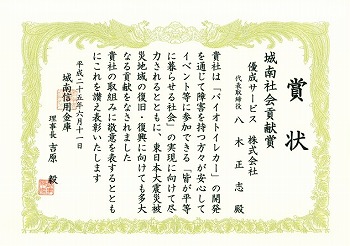 賞状
城南社会貢献賞
優成サービス 株式会社
代表取締役 八木正志 殿
貴社は「バイオトイレカー」の開発
を通じて障害を持つ方々が安心して
イベント等に参加できる「皆が平等
に暮らせる社会」の実現に向けて尽
力されるとともに、東日本大震災被
災地域の復旧・復興に向けても多大
なる貢献をなされました
貴社の取組みに敬意を表するととも
にこれを讃え表彰いたします
平成二十五年六月十一日
城南信用金庫
理事長 吉原 毅